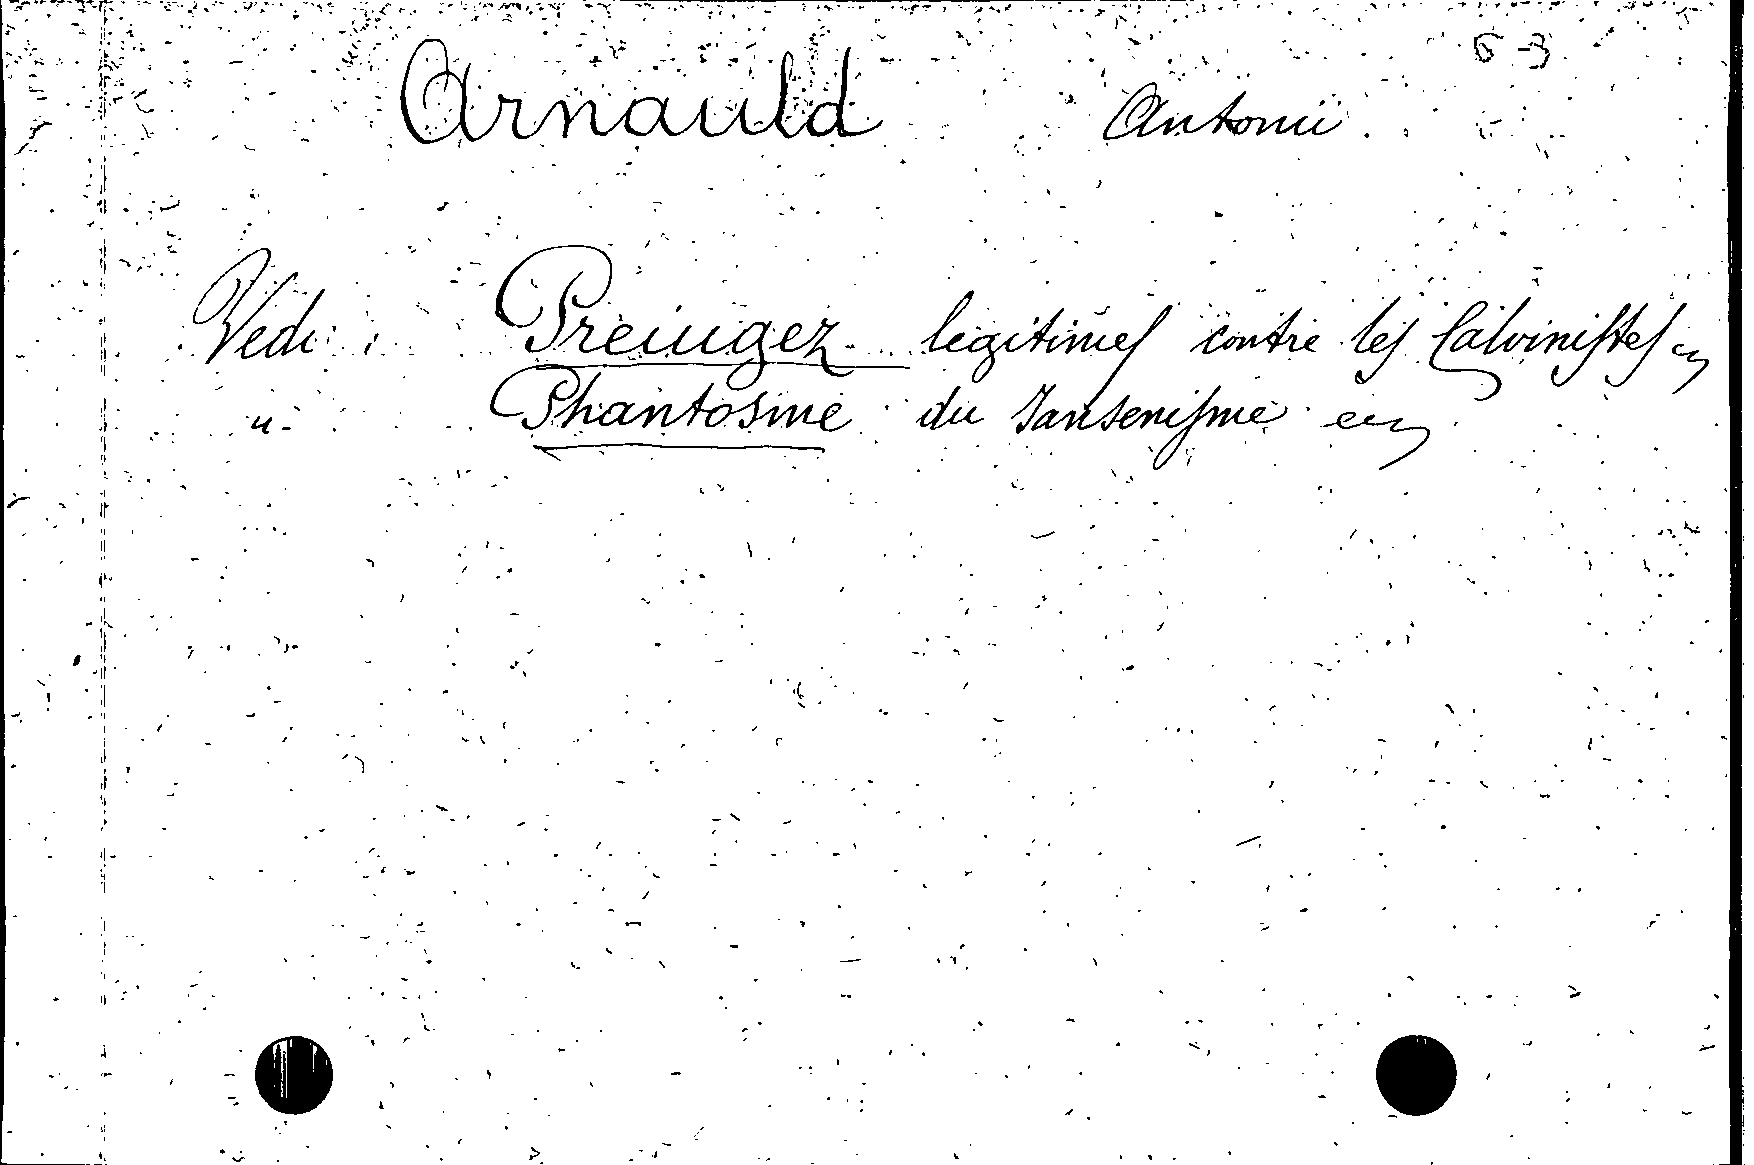 5-3
Arnauld Antonii
Vedi: Preiugez legitimes contre les Calvinistes
" Phantosme du Jansenisme